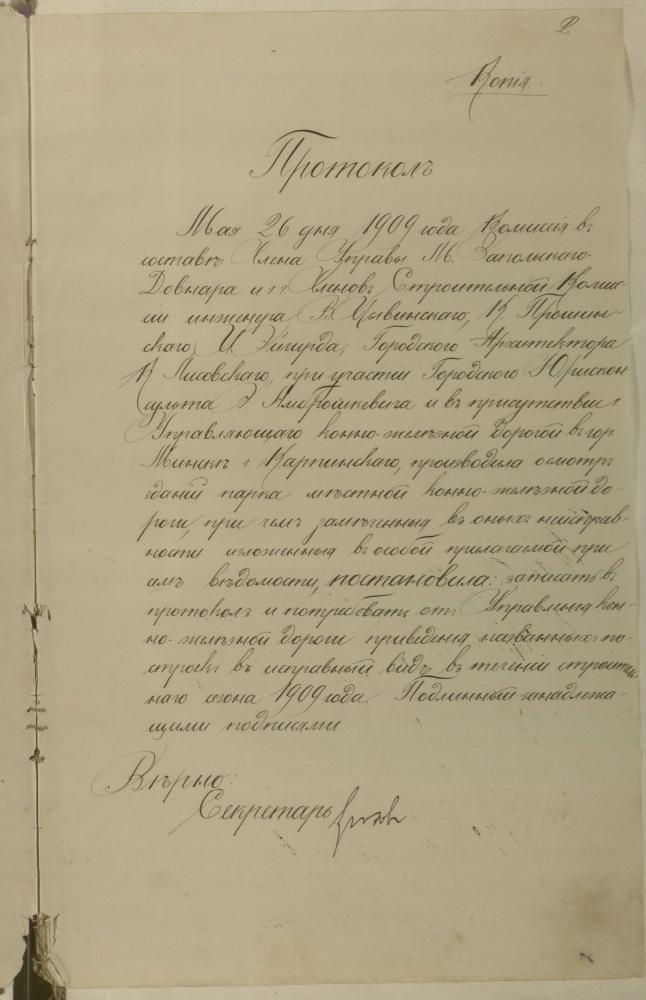 2
Копія.
Протоколъ
Мая 26 дня 1909 года Комиссія въ
составѣ Члена Управы М. Запольскаго-
Довнара и г.г. Членовъ Строительной Комис-
сіи: инженера В. Цывинскаго, К. Прошин-
скаго, И. Эйгирда, Городского Архитектора
К. Лисовскаго, при участіи Городского Юрискон-
сульта Э. Амброшкевича и въ присутствіи г.
Управляющаго конно-желѣзной дорогой въ гор.
Минскѣ г. Карпинскаго, производила осмотръ
зданій парка мѣстной конно-желѣзной до-
роги, при чемъ замѣченныя въ оныхъ неисправ-
ности изложенныя въ особой прилагаемой при
семъ вѣдомости, постановила: записать въ
протоколъ и потребовать отъ Управленія кон-
но-желѣзной дороги приведенія названныхъ по-
строекъ въ исправный видъ въ теченіи строитель-
наго сезона 1909 года. Подлинный за надлежа-
щими подписями
Вѣрно:
Секретарь